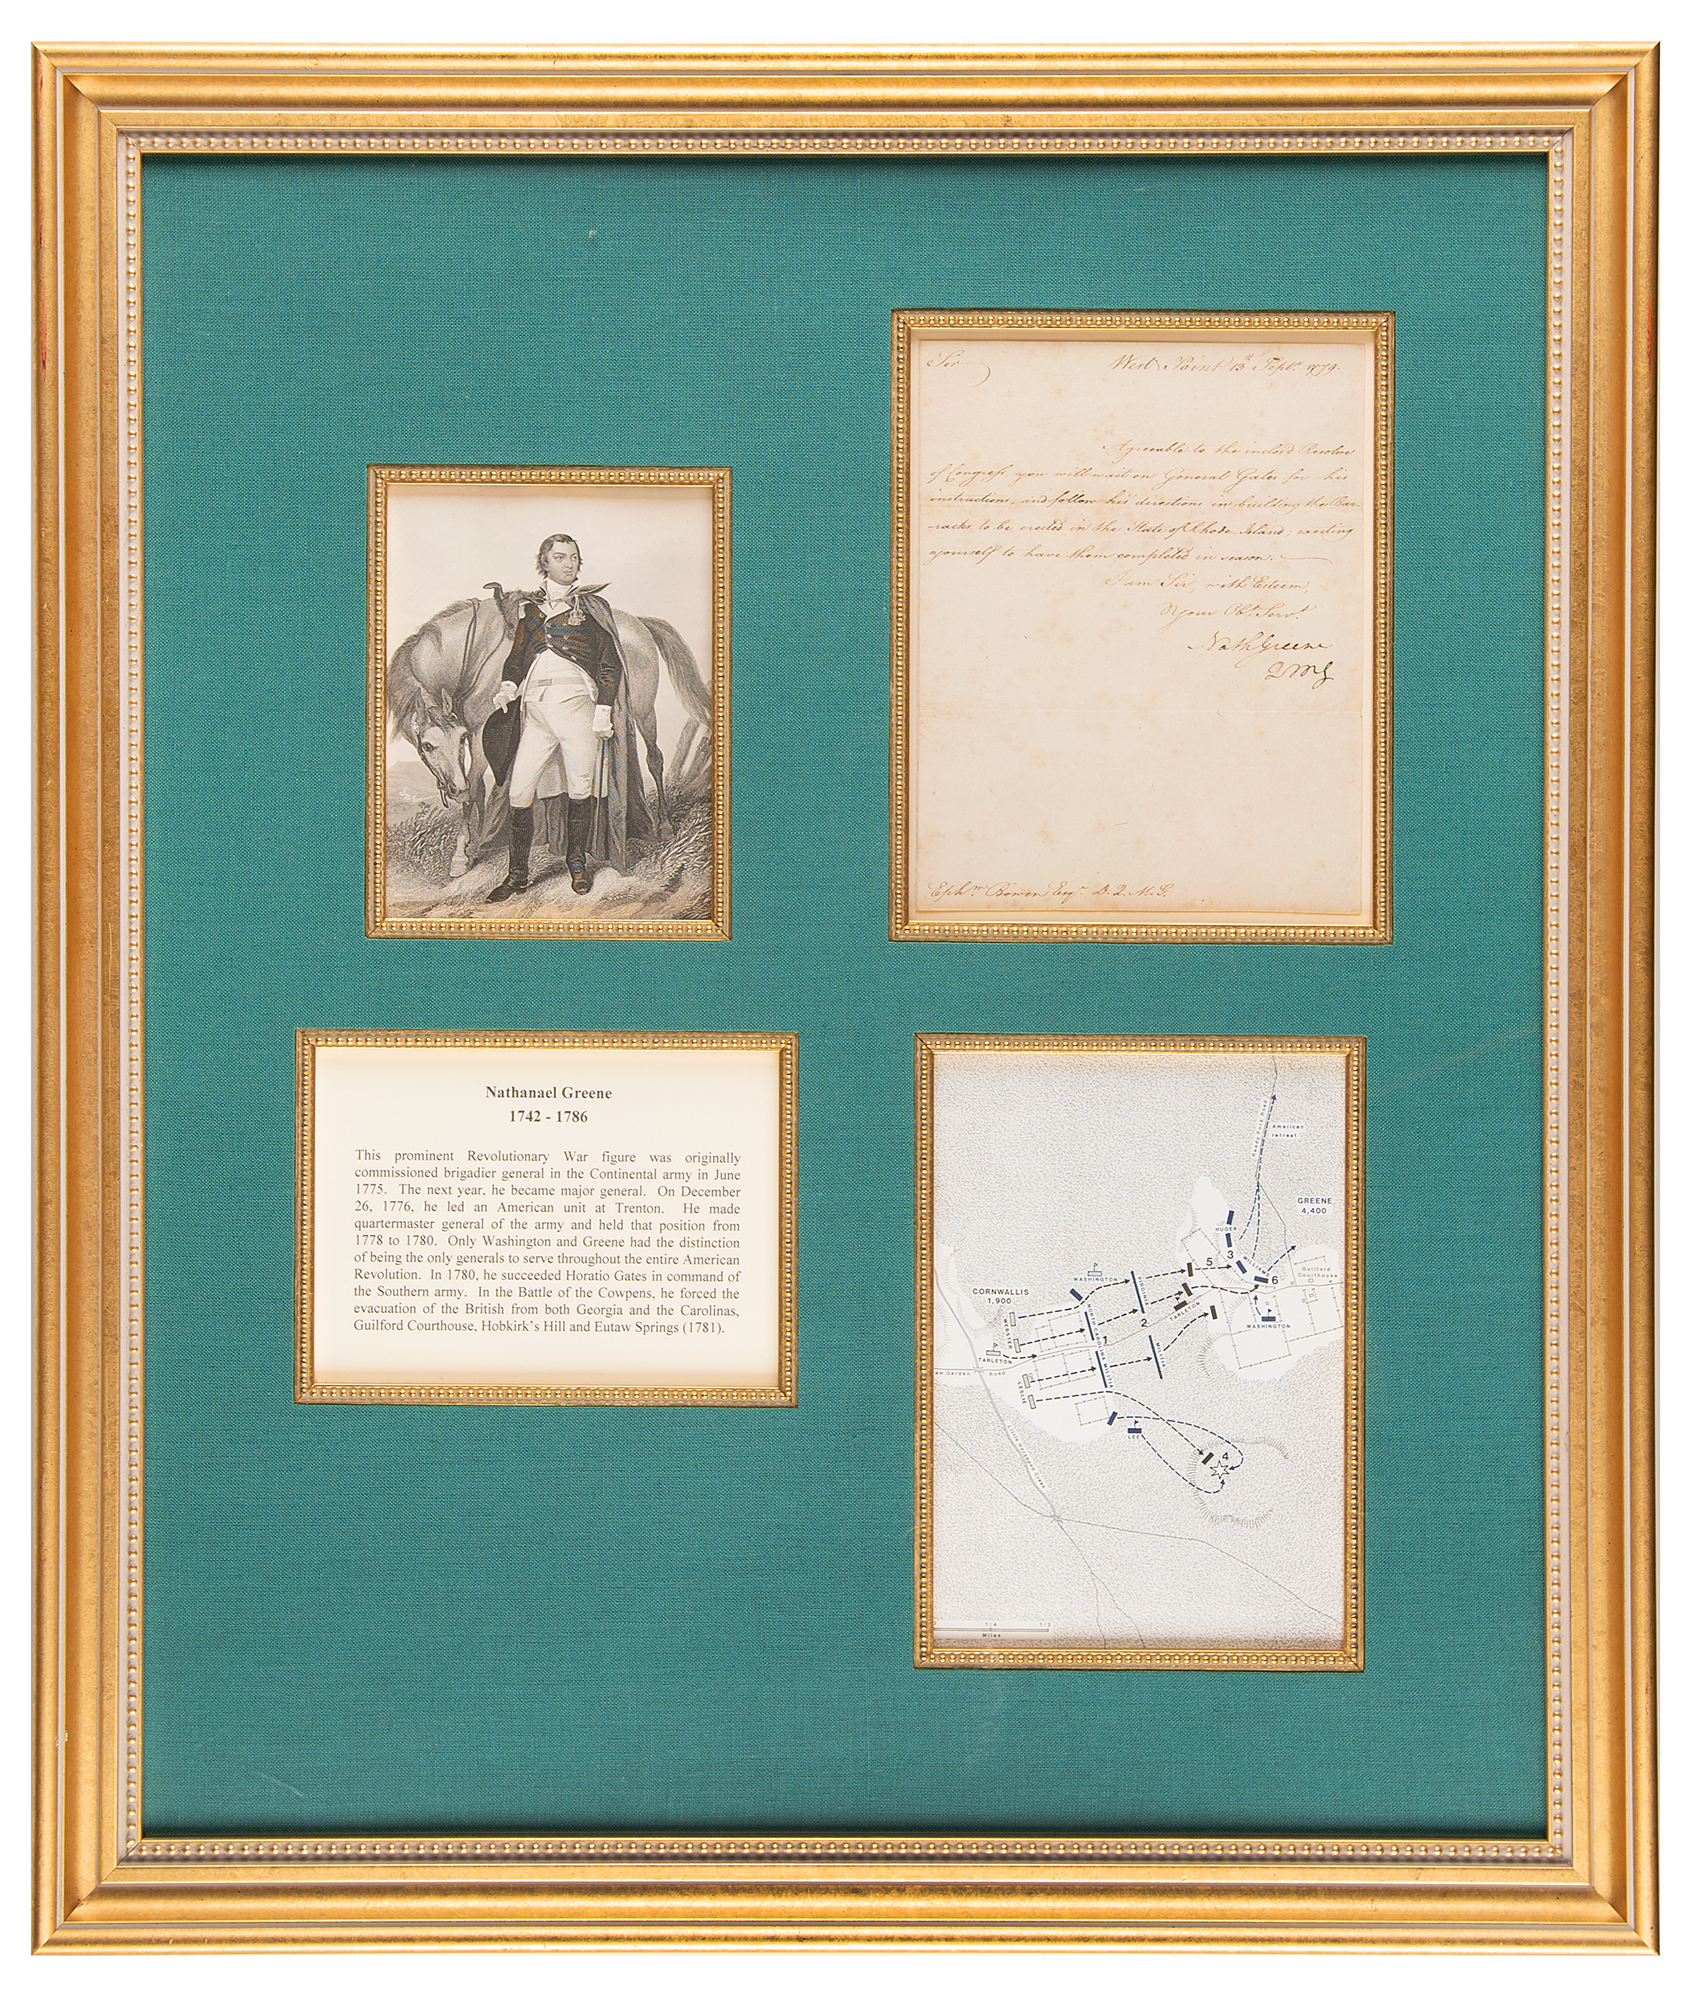 Sir West Point 13th Septr. 1779.
Agreeable to the inclosd Resolve
of Congress you will wait on General Gates for his
instructions, and follow his directions in building the Bar-
-racks to be erected in the State of Rhode Island; exerting
yourself to have them completed in season.
I am Sir, with Esteem,
Your Obt. Servt.
Nath Greene
QMG
Ephm. Bowen Esqr. D. Q. M. G.
Nathanael Greene
1742 - 1786
This prominent Revolutionary War figure was originally
commissioned brigadier general in the Continental army in June
1775. The next year, he became major general. On December
26, 1776, he led an American unit at Trenton. He made
quartermaster general of the army and held that position from
1778 to 1780. Only Washington and Greene had the distinction
of being the only generals to serve throughout the entire American
Revolution. In 1780, he succeeded Horatio Gates in command of
the Southern army. In the Battle of the Cowpens, he forced the
evacuation of the British from both Georgia and the Carolinas,
Guilford Courthouse, Hobkirk's Hill and Eutaw Springs (1781).
American
retreat
GREENE
4,400
HUGER
3
5
WILLIAMS
6
Guilford
Courthouse
WASHINGTON
VIRGINIA
CORNWALLIS
1,900
WEBSTER
NORTH CAROLINA MILITIA
1
2
TARLETON
WASHINGTON
MILITIA
TARLETON
New Garden Road
LESLIE
LEE
4
1/4 1/2
Miles